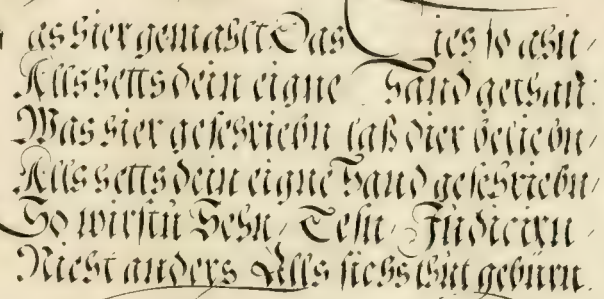 as hier gemahlt Das sies so ahn /
Alls hetts dein eigne Hand gethan:
Was hier geschriebn laß dier beliebn /
Alls hetts dein eigne Hand geschriebn /
So wirstu Sehn / Lesn / Judicirn /
Nicht anders Alls sichs thut gebürn.